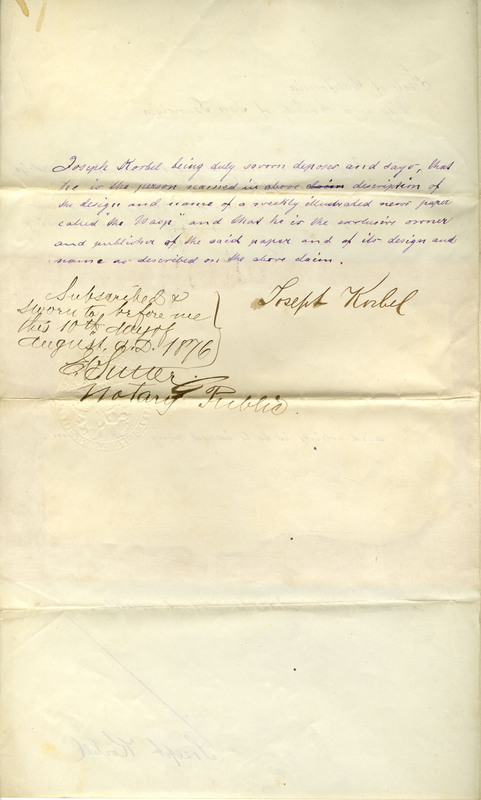 Joseph Korbel being duly sworn deposes and says, that
he is the person named in above claim description of
the design and name of a weekly illustrated news paper
called "the Wasp" and that he is the exclusive owner
and publisher of the said paper and of its design and
name as described on the above claim.
Joseph Korbel
Subscribed &
sworn to before me
this 10th day of
August A.D. 1876
Notary Public
Joseph Korbel